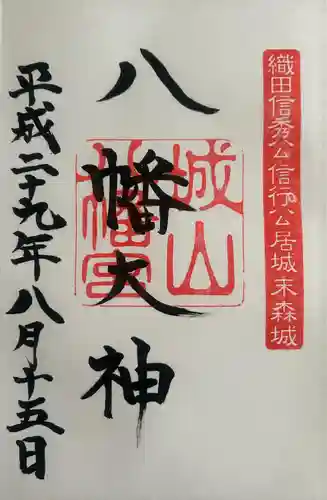 織田信秀公信行公居城 末森城
八幡大神
城山八幡宮
平成二十九年八月十五日